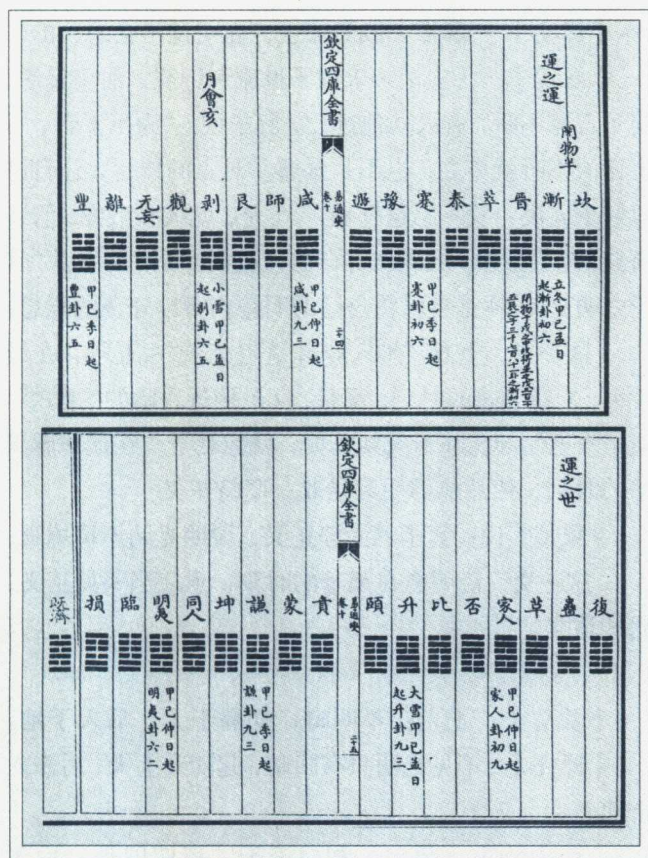 運之運
開物半
坎
漸
立冬甲己孟日
起漸卦初六
晉
萃
泰
蹇
甲己季日起
蹇卦初六
豫
遯
欽定四庫全書
易通變
卷十
二十四
咸
甲己仲日起
咸卦九三
師
艮
月會亥
剥
小雪甲己孟日
起剥卦六五
觀
无妄
離
豐
甲己季日起
豐卦六五
運之世
復
蠱
革
家人
甲己仲日起
家人卦初九
否
比
升
大雪甲己孟日
起升卦九三
頤
欽定四庫全書
易通變
卷十
二十五
賁
蒙
謙
甲己季日起
謙卦九三
坤
同人
明夷
甲己仲日起
明夷卦六二
臨
損
既濟